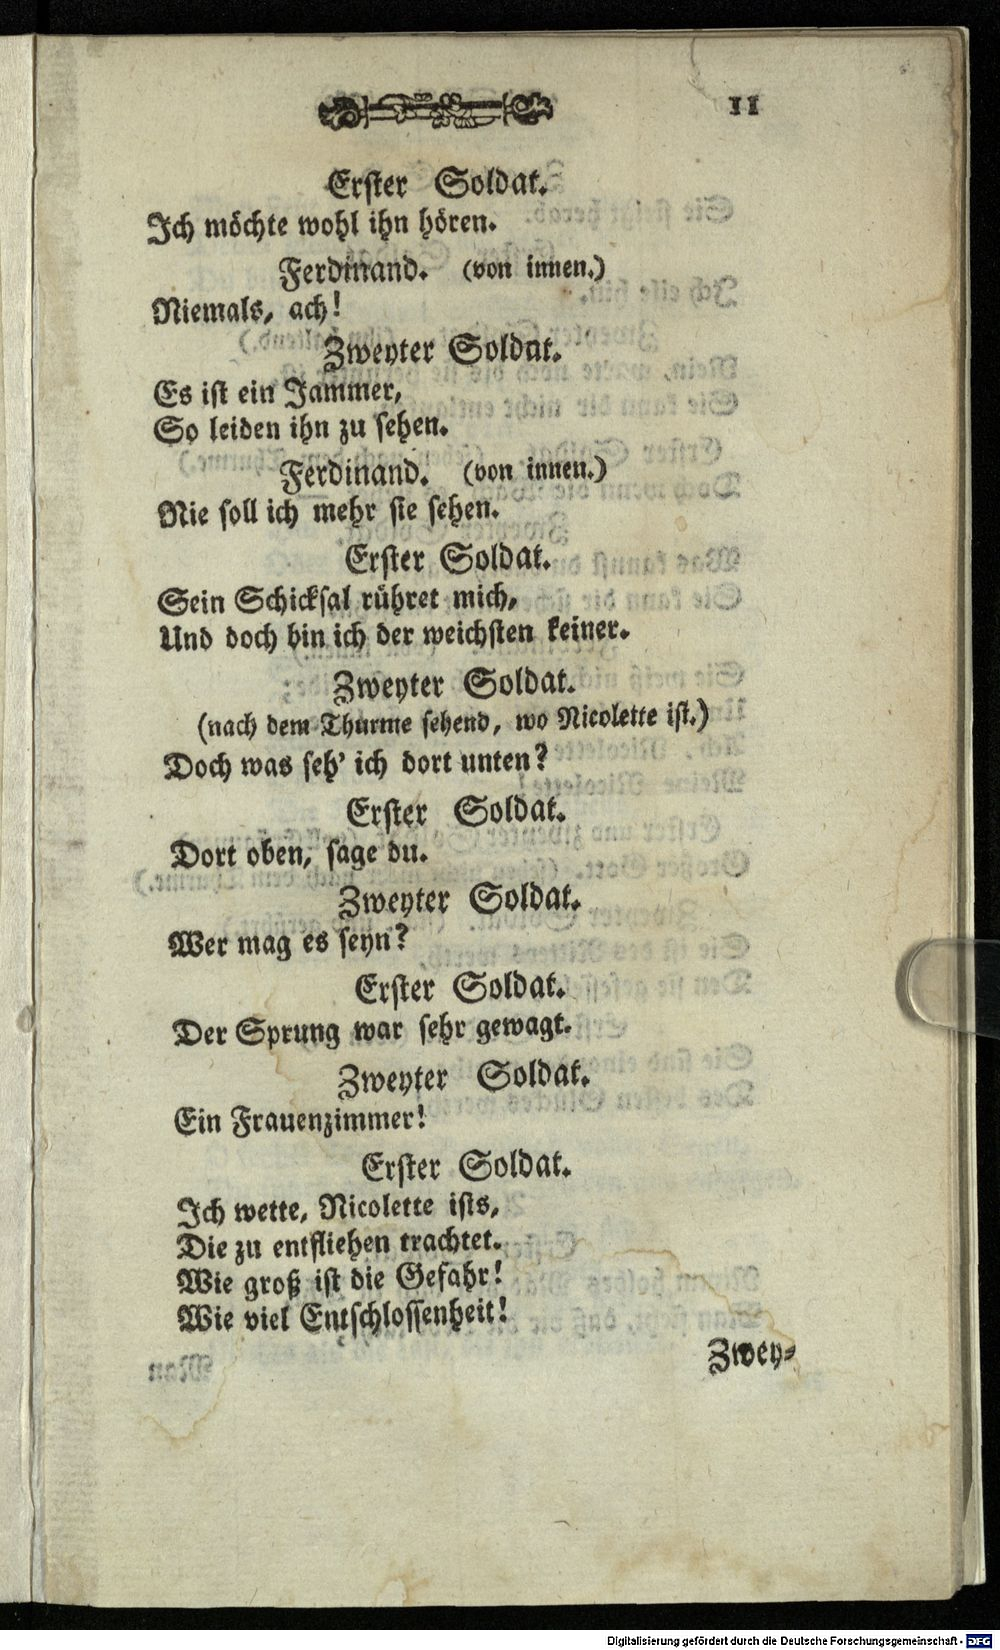 11
Erster Soldat.
Ich möchte wohl ihn hören.
Ferdinand. (von innen.)
Niemals, ach!
Zweyter Soldat.
Es ist ein Jammer,
So leiden ihn zu sehen.
Ferdinand. (von innen.)
Nie soll ich mehr sie sehen.
Erster Soldat.
Sein Schicksal rühret mich,
Und doch bin ich der weichsten keiner.
Zweyter Soldat.
(nach dem Thurme sehend, wo Nicolette ist.)
Doch was seh' ich dort unten?
Erster Soldat.
Dort oben, sage du.
Zweyter Soldat.
Wer mag es seyn?
Erster Soldat.
Der Sprung war sehr gewagt.
Zweyter Soldat.
Ein Frauenzimmer!
Erster Soldat.
Ich wette, Nicolette ists,
Die zu entfliehen trachtet.
Wie groß ist die Gefahr!
Wie viel Entschlossenheit!
Zwey-
Digitalisierung gefördert durch die Deutsche Forschungsgemeinschaft - DFG